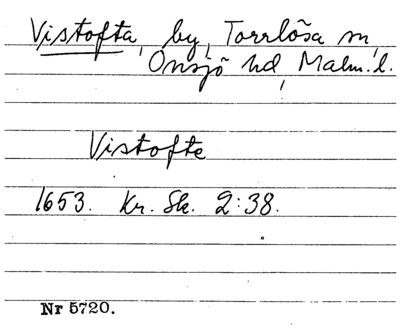 Vistofta, by, Torrlösa sn,
Onsjö hd, Malm. l.
Vistofte
1653. Kr. Sk. 2:38.
Nr 5720.